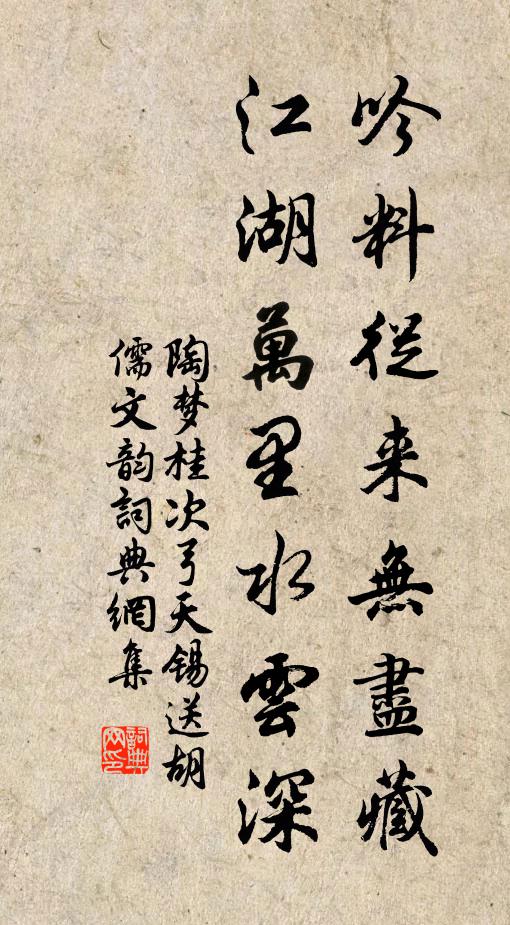 吟料從来無盡藏
江湖萬里水雲深
陶梦桂次弓天锡送胡
儒文韵詞典網集
詞典
网印